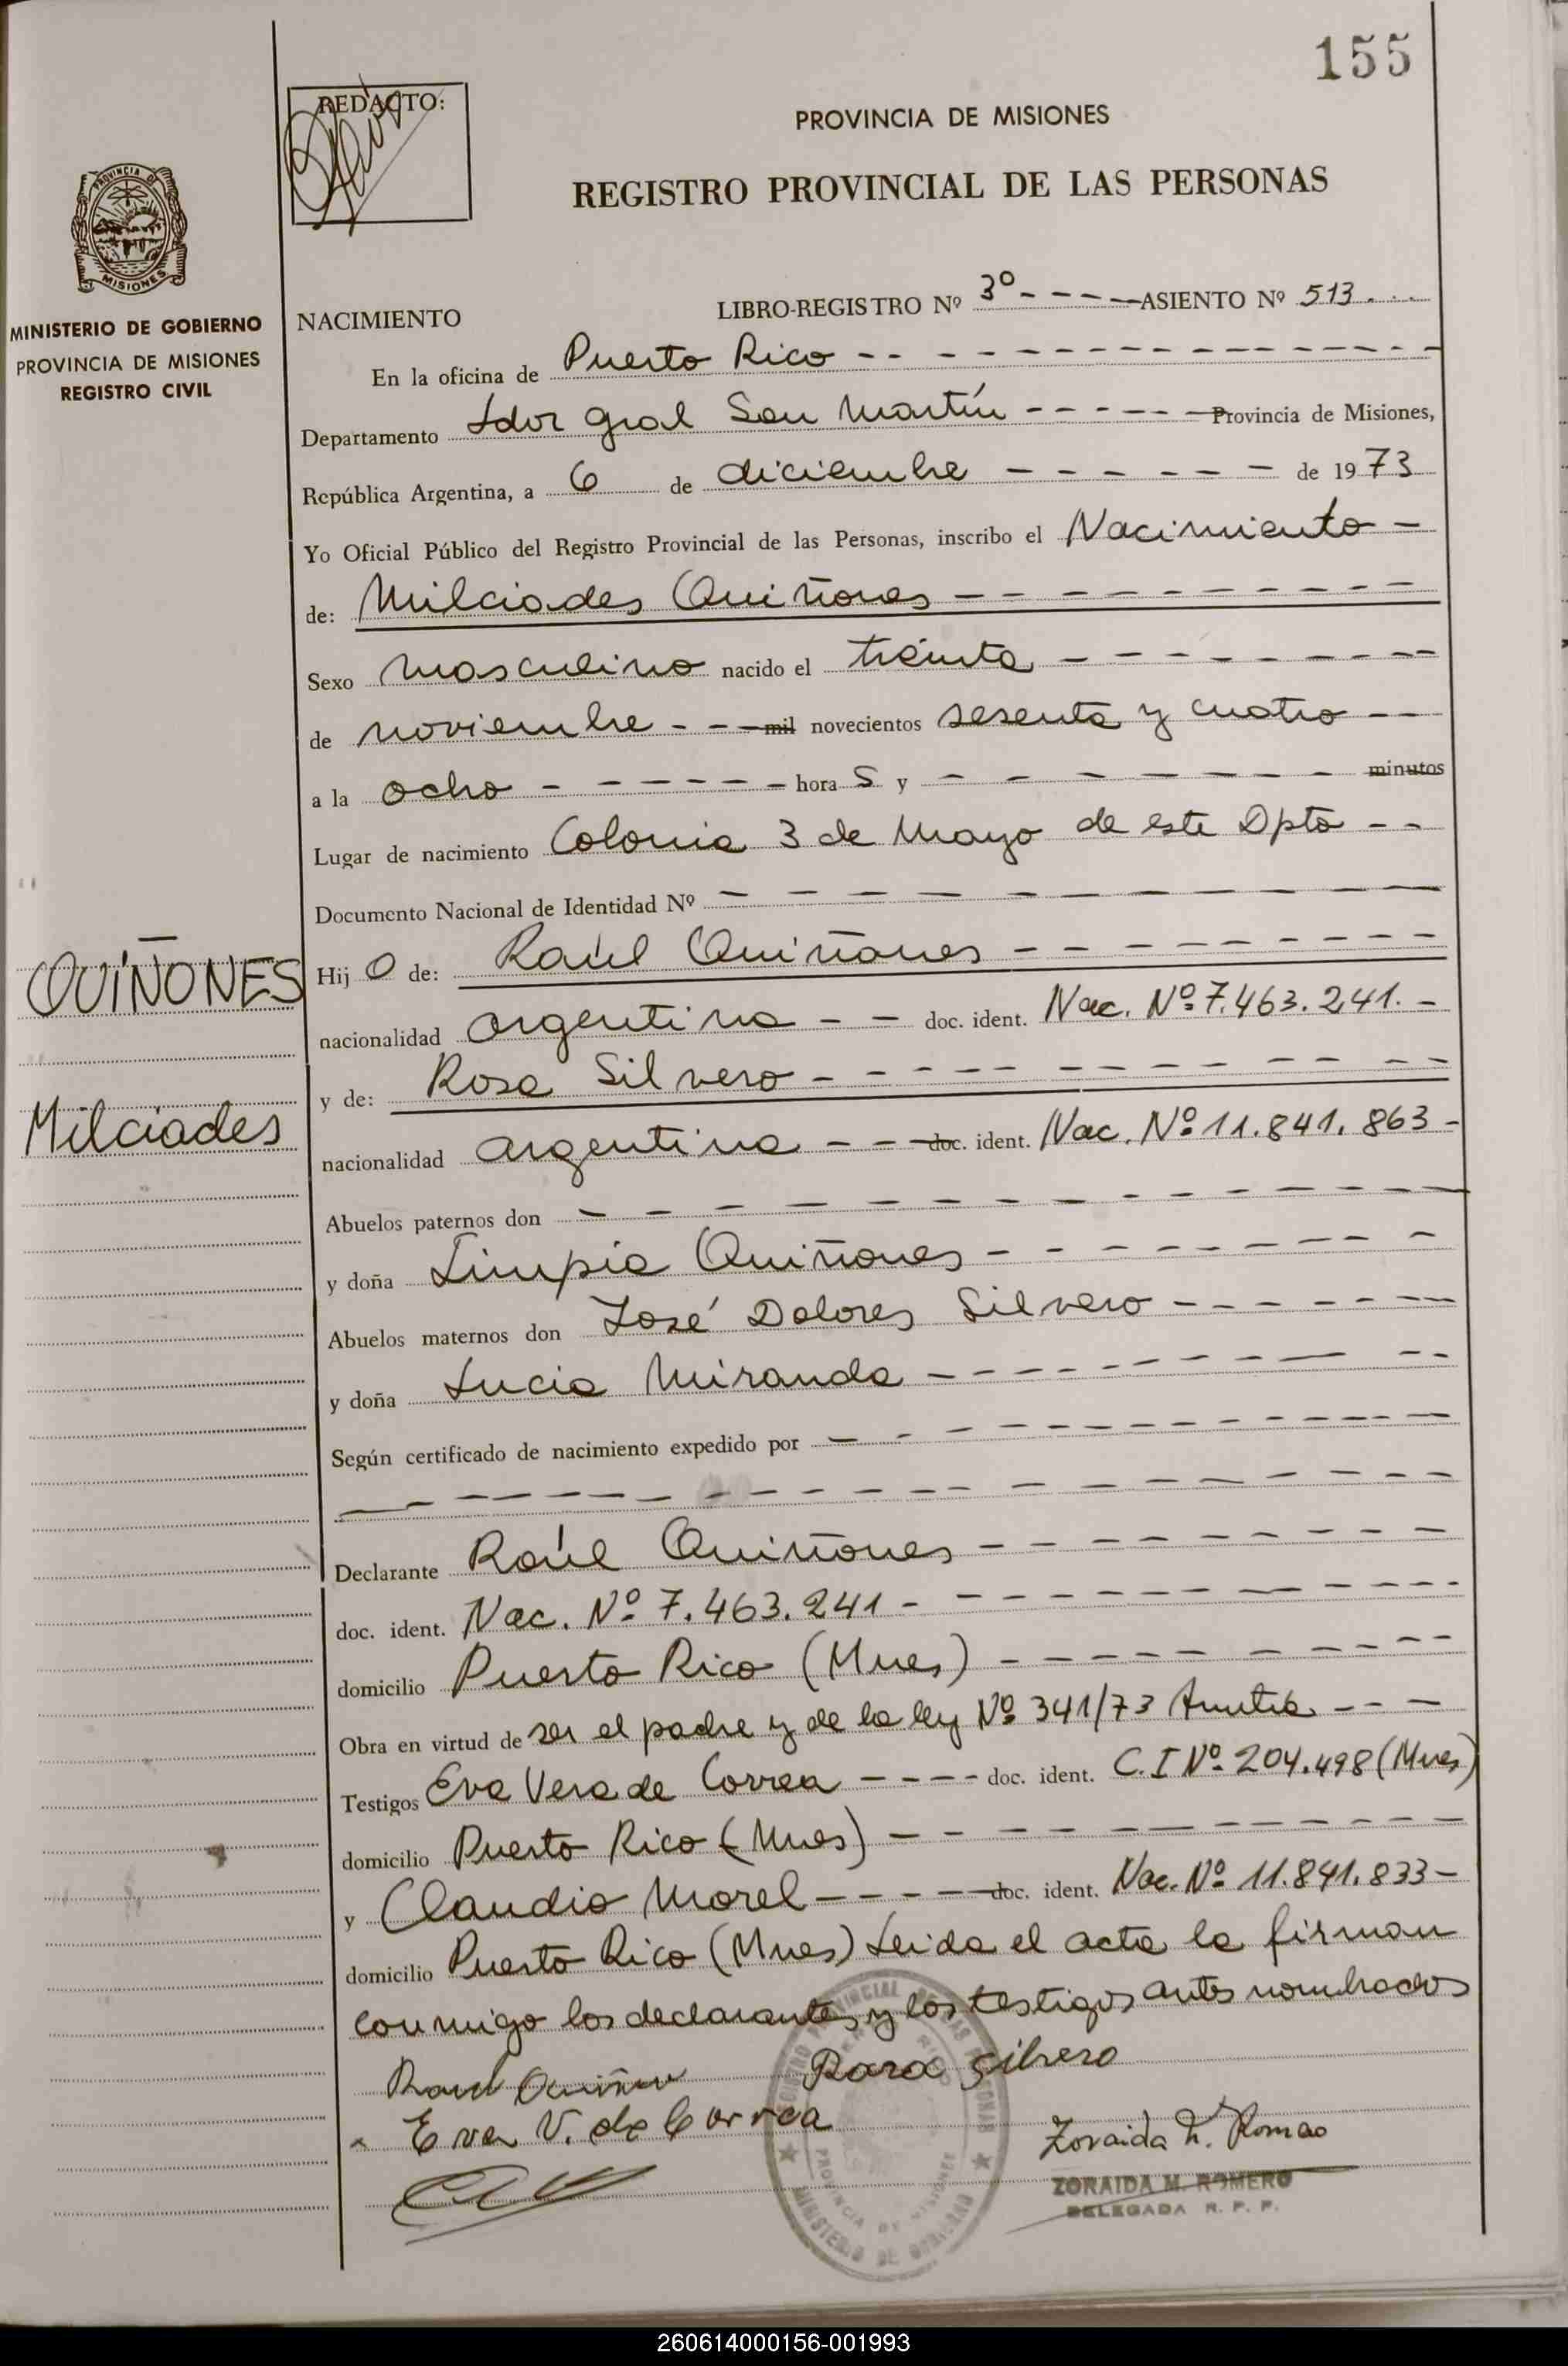 155
REDACTO:
PROVINCIA DE MISIONES
REGISTRO PROVINCIAL DE LAS PERSONAS
PROVINCIA DE
MISIONES
MINISTERIO DE GOBIERNO
PROVINCIA DE MISIONES
REGISTRO CIVIL
NACIMIENTO
LIBRO-REGISTRO Nº 3º - - - - - ASIENTO Nº 513 . . .
En la oficina de Puerto Rico
Departamento Ldor Gral San Martín - - - - - - Provincia de Misiones,
República Argentina, a 6 de diciembre - - - - - - de 1973
Yo Oficial Público del Registro Provincial de las Personas, inscribo el Nacimiento -
de: Milciades Quiñones
Sexo masculino nacido el treinta
de noviembre - - - mil novecientos sesenta y cuatro - -
a la ocho - - - - - - hora s y - - - - - - - minutos
Lugar de nacimiento Colonia 3 de Mayo de este Dpto - -
Documento Nacional de Identidad Nº
QUIÑONES
Milciades
Hij o de: Raúl Quiñones
nacionalidad argentina - - doc. ident. Nac. Nº 7.463.241. -
y de: Rosa Silvero
nacionalidad argentina - - - doc. ident. Nac. Nº 11.841.863 -
Abuelos paternos don
y doña Limpia Quiñones
Abuelos maternos don José Dolores Silvero
y doña Lucia Miranda
Según certificado de nacimiento expedido por
Declarante Raúl Quiñones
doc. ident. Nac. Nº 7.463.241 -
domicilio Puerto Rico (Mnes)
Obra en virtud de ser el padre y de la ley Nº 341/73 Amntía - - -
Testigos Eva Vera de Correa - - - - doc. ident. C.I Nº 204.498 (Mnes)
domicilio Puerto Rico (Mnes)
y Claudio Morel - - - - - doc. ident. Nac. Nº 11.841.833 -
domicilio Puerto Rico (Mnes) Leida el acta la firman
conmigo los declarantes y los testigos antes nombrados
Raul Quiñon Rosa Silvero
Eva V. de Correa
Zoraida M. Romero
ZORAIDA M. ROMERO
DELEGADA R. P. P.
PROVINCIA DE MISIONES
MINISTERIO DE GOBIERNO
260614000156-001993